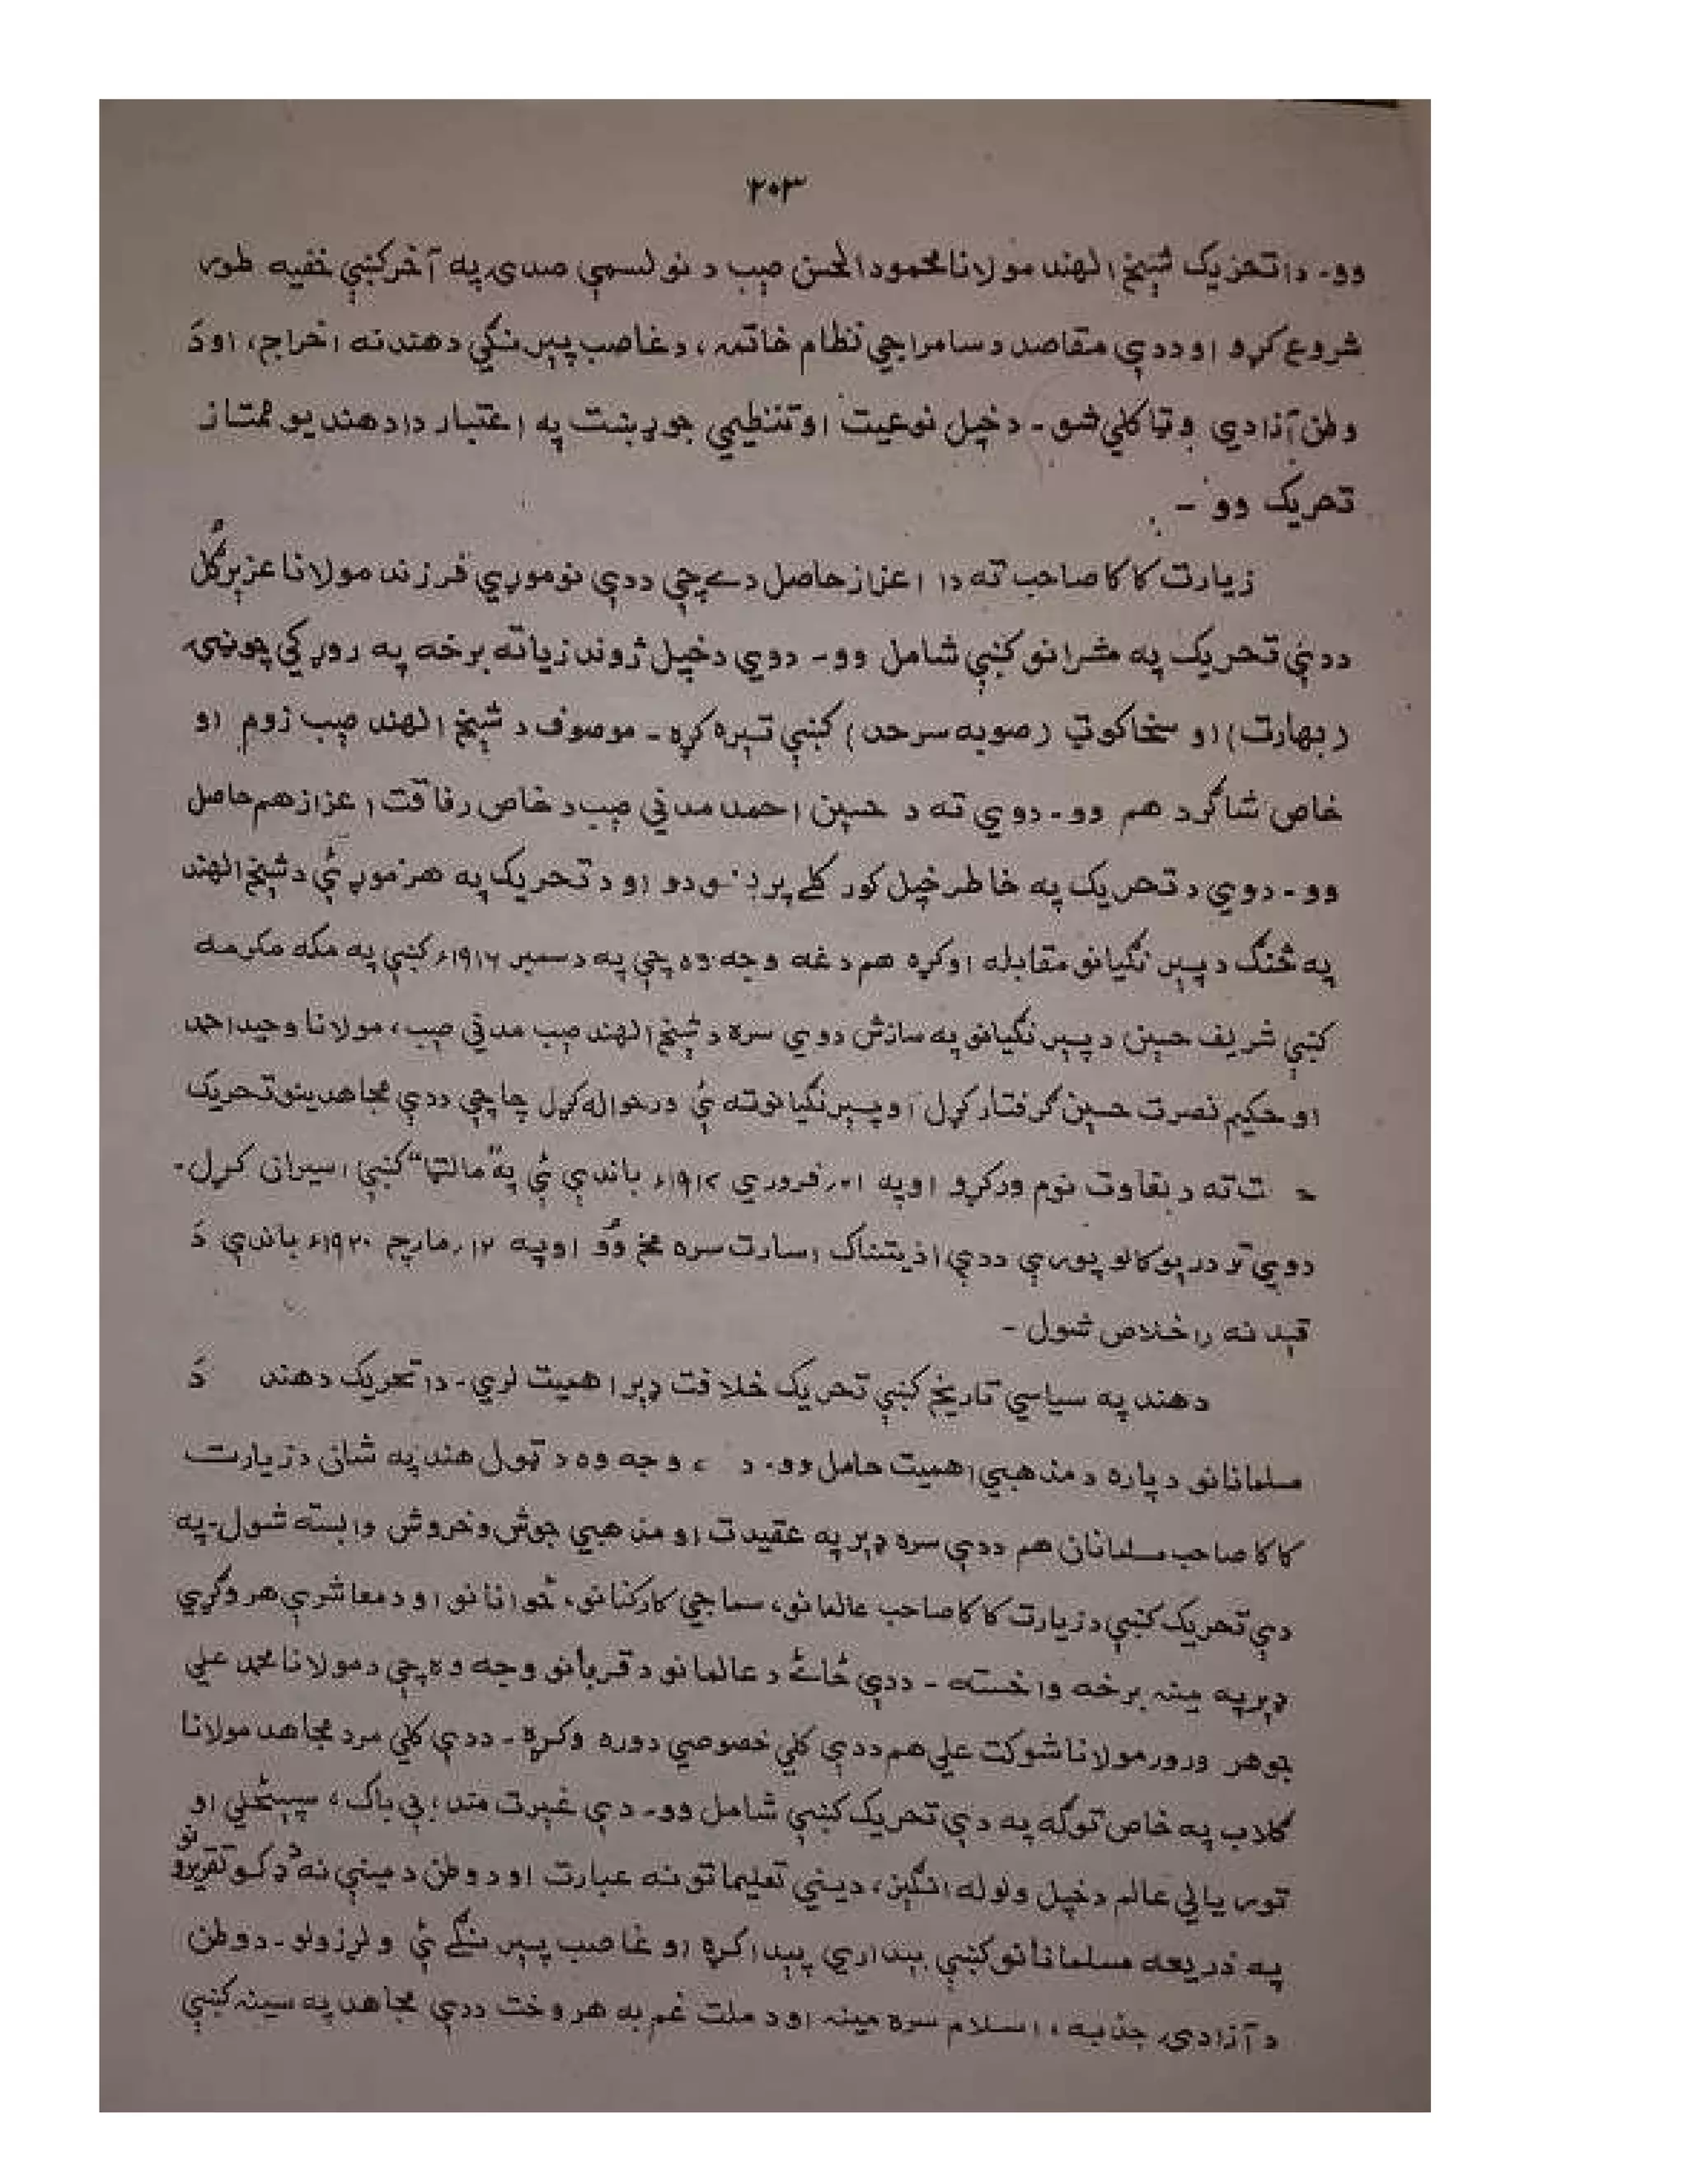 ۲۰۳
وو۔ دا تحریک شیخ الهند مولانا محمود الحسن صېب د نولسمې صدۍ په آخر کښې خفیه طور
شروع کړو او ددې مقاصد د سامراجي نظام خاتمه، د غاصب پیرنګي د هند نه اخراج، او دَ
وطن آزادي وټاکلي شو۔ د خپل نوعیت او تنظیمي جوړښت په اعتبار دا د هند یو ممتاز
تحریک وو ۔
زیارت کاکا صاحب ته دا اعزاز حاصل دے چې ددې نوموړي فرزند مولانا عزیر ګل
ددې تحریک په مشرانو کښې شامل وو۔ دوي د خپل ژوند زیاته برخه په روړکي چونۍ
(بهارت) او سخاکوټ (صوبه سرحد) کښې تېره کړه۔ موصوف د شیخ الهند صېب زوم او
خاص شاګرد هم وو۔ دوي ته د حسین احمد مدني صېب د خاص رفاقت اعزاز هم حاصل
وو۔ دوي د تحریک په خاطر خپل کور کلے پر ودو او د تحریک په هر موړ ئې د شیخ الهند
په څنګ د پیرنګیانو مقابله اوکړه هم دغه وجه وه چې په دسمبر ۱۹۱۶ء کښې په مکه مکرمه
کښې شریف حسین د پیرنګیانو په سازش دوي سره د شیخ الهند صېب مدني صېب، مولانا وحید احمد
او حکیم نصرت حسین ګرفتار کړل او پیرنګیانو ته ئې ورحواله کړل چا چې ددې مجاهدینو تحریک
ته د بغاوت نوم ورکړو او په فروري ۱۹۱۷ء باندې ئې په "مالټا" کښې اسیران کړل۔
دوي تر درېو کالو پورې ددې اذیتناک اسارت سره مخ وُو او په ۱۲ مارچ ۱۹۲۰ء باندې دَ
قید نه را خلاص شول ۔
د هند په سیاسي تاریخ کښې تحریک خلافت ډېر اهمیت لري۔ دا تحریک د هند دَ
مسلمانانو دپاره د مذهبي اهمیت حامل وو۔ د وجه وه د ټول هند په شان د زیارت
کاکا صاحب مسلمانان هم ددې سره ډېر په عقیدت او مذهبي جوش و خروش وابسته شول۔ په
دې تحریک کښې د زیارت کاکا صاحب عالمانو، سماجي کارکنانو، ځوانانو او د معاشرې هر وګړي
ډېر په مینه برخه واخسته ۔ ددې ځائے د عالمانو د قربانو وجه وه چې د مولانا محمد علي
جوهر ورور مولانا شوکت علي هم ددې کلي خصوصي دوره وکړه ۔ ددې کلي مرد مجاهد مولانا
ګلاب په خاص توګه په دې تحریک کښې شامل وو۔ دې غیرت مند، بې باک، سپېڅلي او
توریالي عالم د خپل ولوله انګېز، دیني تعلیماتو نه عبارت او د وطن د مینې نه ډکو تقریرونو
په ذریعه مسلمانانو کښې بیداري پیدا کړه او غاصب پیرنګے ئې ولړزولو۔ د وطن
د آزادۍ جذبه، اسلام سره مینه او د ملت غم به هر وخت ددې مجاهد په سینه کښې